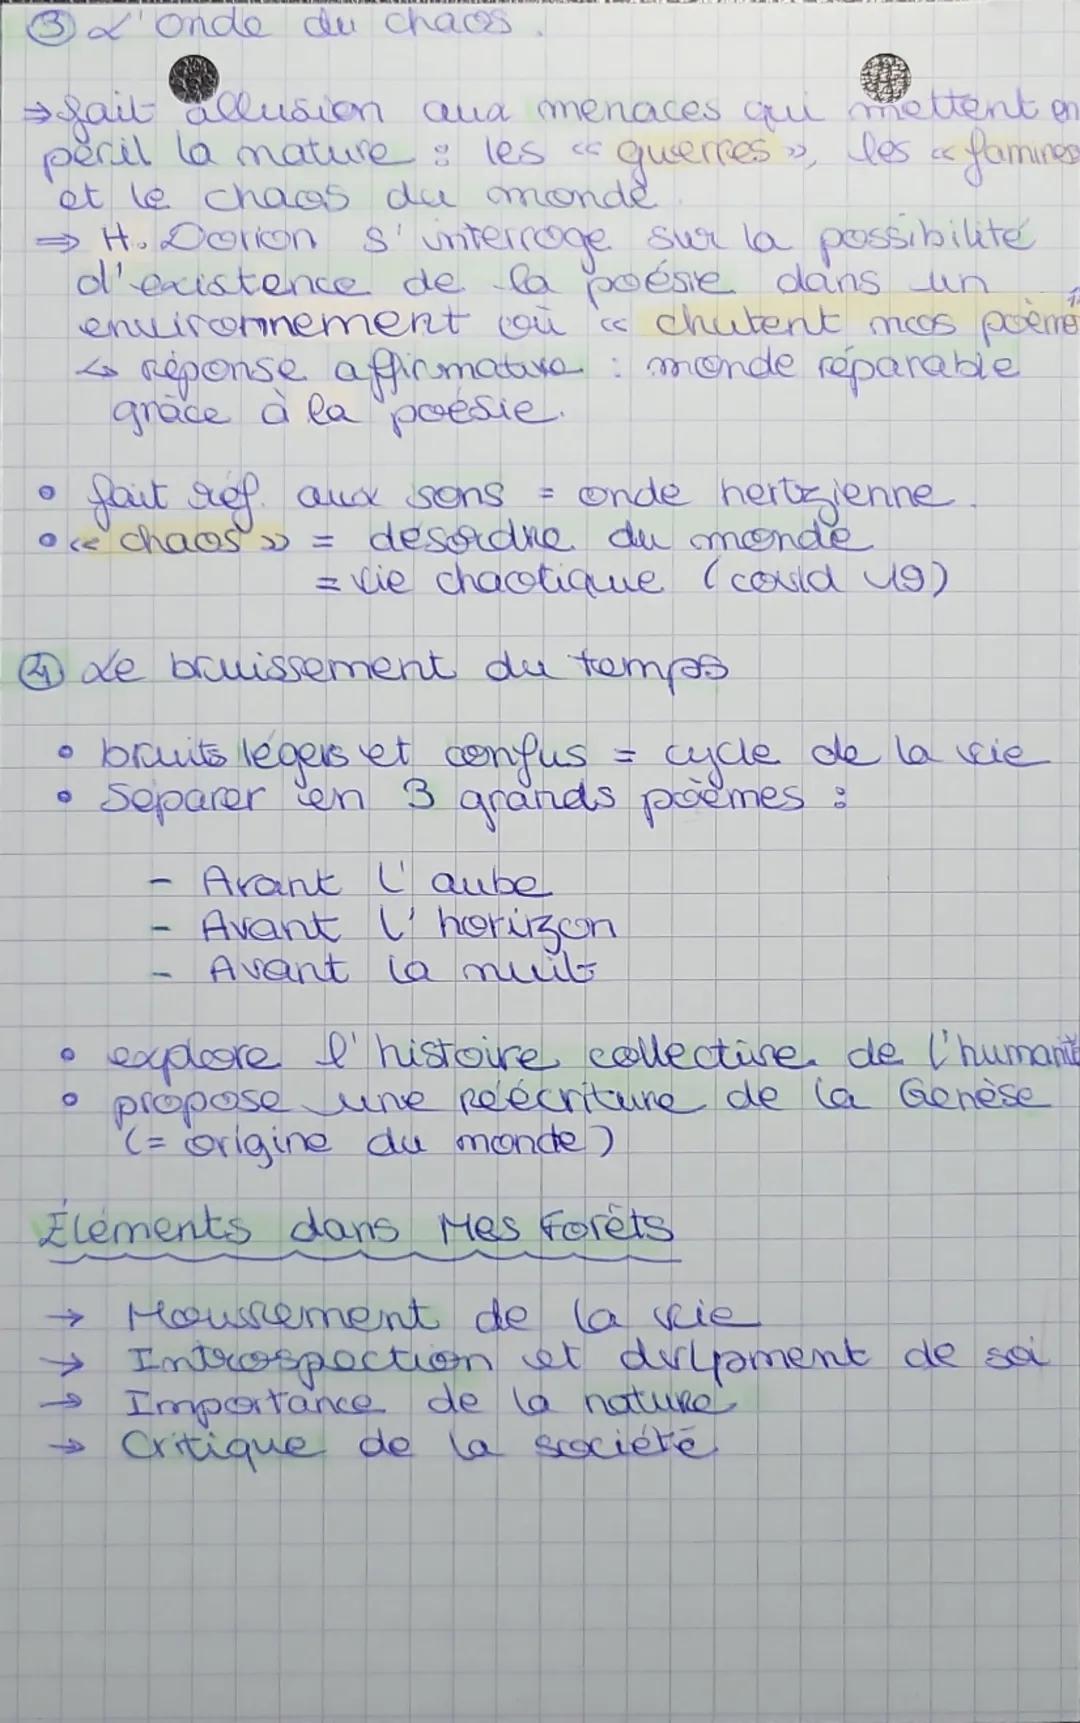 ③ L'onde du chaos.
⇒ fait allusion aux menaces qui mettent en
péril la nature : les « guerres », les « famines
et le chaos du monde.
⇒ H. Dorion s'interroge sur la possibilité
d'existence de la poésie dans un
environnement où « chutent nos poème
↳ réponse affirmative : monde réparable
grâce à la poésie.
• fait réf. aux sons = onde hertzienne.
• « chaos » = désordre du monde
= vie chaotique (covid 19)
④ Le bruissement du temps
• bruits légers et confus = cycle de la vie
• Séparer en 3 grands poèmes :
- Avant l'aube
- Avant l'horizon
- Avant la nuit
• explore l'histoire collective de l'humanité
• propose une réécriture de la Genèse
(= origine du monde)
Éléments dans Mes Forêts
→ Mouvement de la vie
→ Introspection et dvlpment de soi
→ Importance de la nature
→ Critique de la société